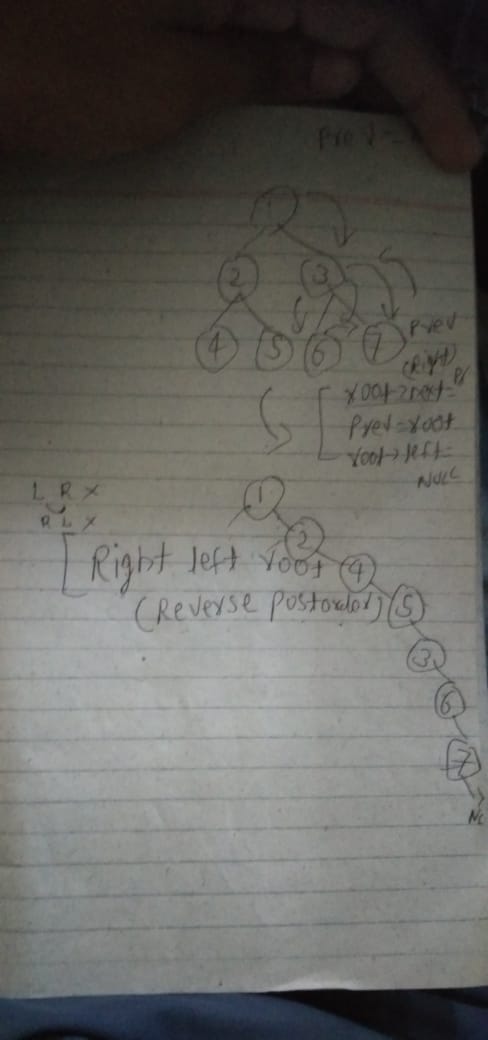 Prev =
1
2 3
4 5 6 7
Prev
(Right)
root→next=
Prev=root
root→left=
NULL
L R X
R L X
1
2
[ Right left root
4
(Reverse Postorder)
5
3
6
7